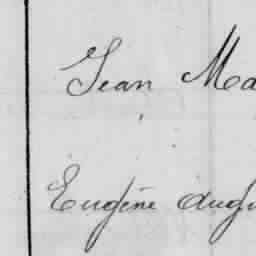 Jean Ma
Eugène Augu